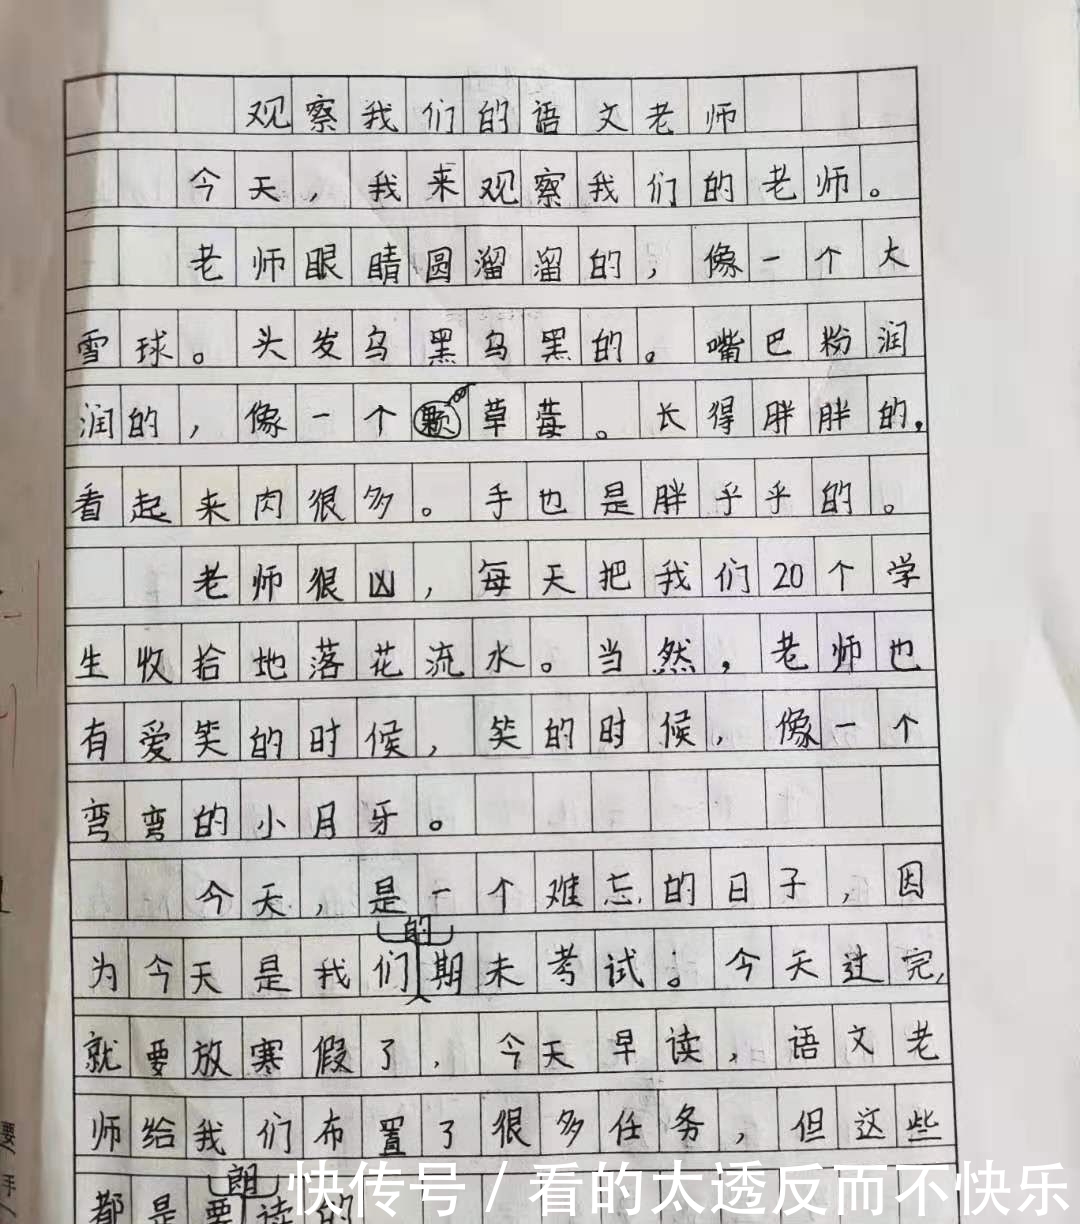 观察我们的语文老师
今天,我来观察我们的老师。
老师眼睛圆溜溜的,像一个大
雪球。头发乌黑乌黑的。嘴巴粉润
润的,像一个颗草莓。长得胖胖的,
看起来肉很多。手也是胖乎乎的。
老师很凶,每天把我们20个学
生收拾地落花流水。当然,老师也
有爱笑的时候,笑的时候,像一个
弯弯的小月牙。
今天,是一个难忘的日子,因
为今天是我们的期末考试。今天过完,
就要放寒假了,今天早读,语文老
师给我们布置了很多任务,但这些
都是要朗读的
快传号/看的太透反而不快乐